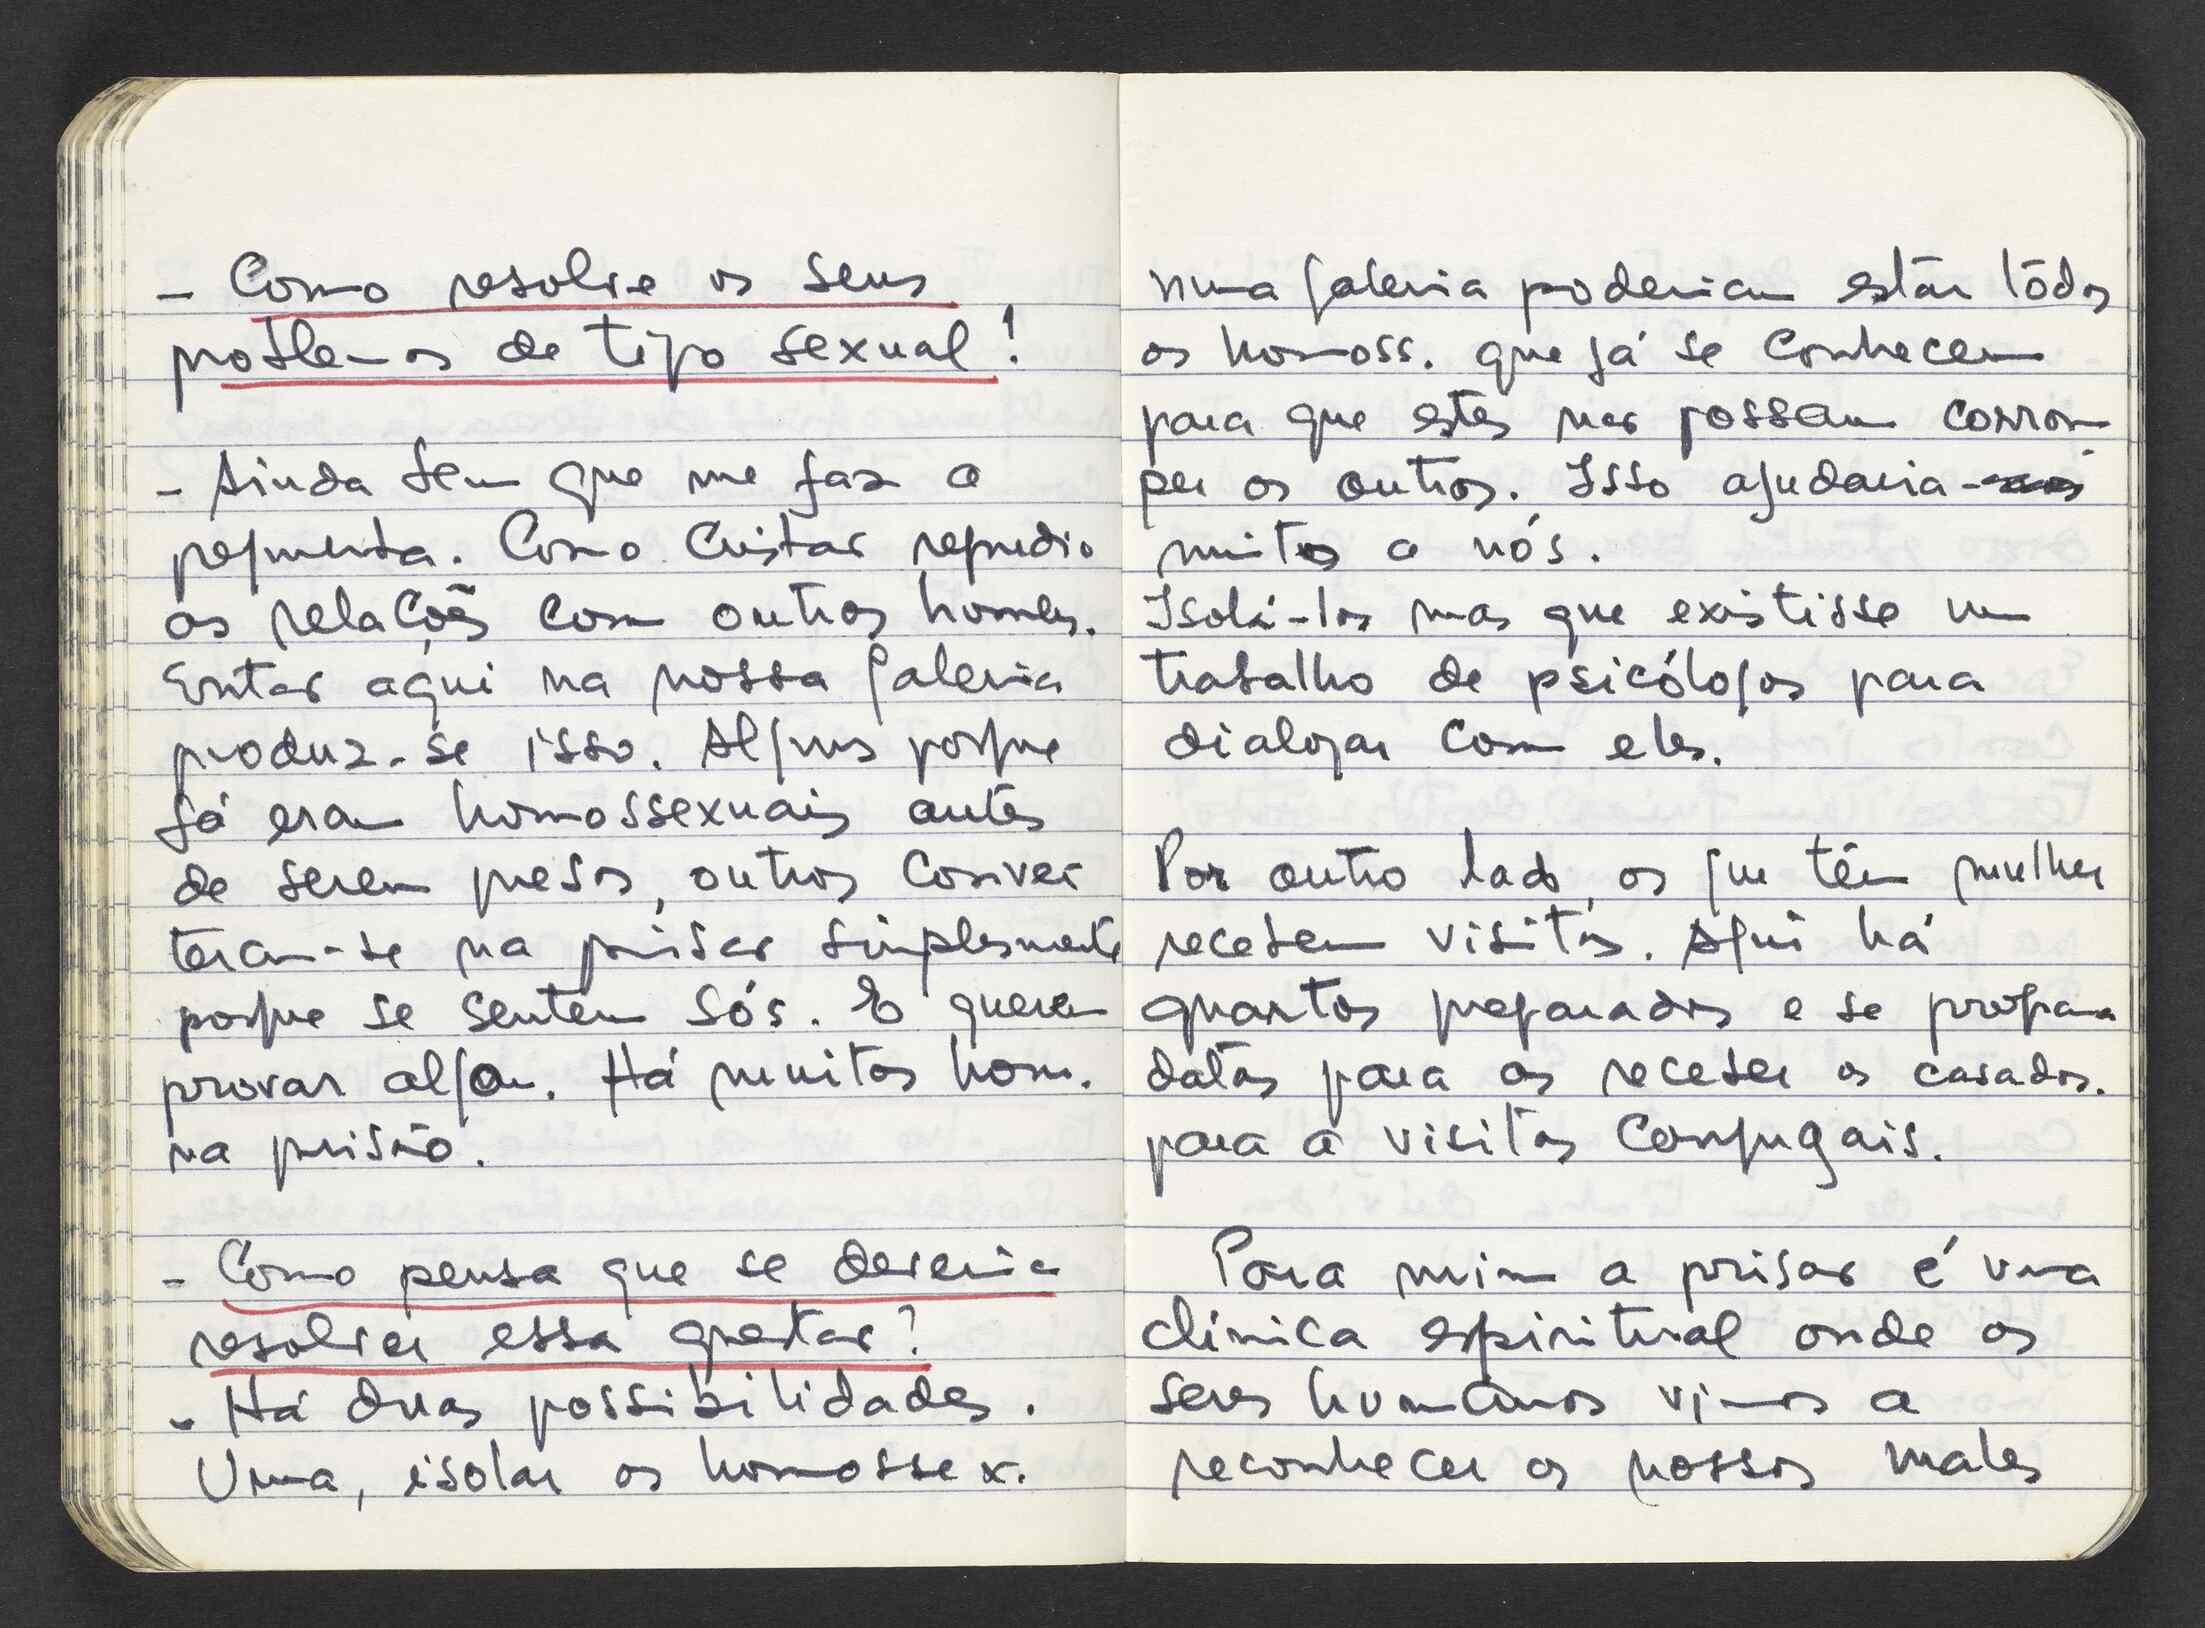 - Como resolve os seus
problemas de tipo sexual!
- Ainda bem que me faz a
pergunta. Como cristão repudio
as relações com outros homens.
Então aqui na nossa galeria
produz-se isso. Alguns porque
já eram homossexuais antes
de serem presos, outros conver
teram-se na prisão simplesmente
porque se sentem sós. E querem
provar algo. Há muitos hom.
na prisão.
- Como pensa que se deveria
resolver essa questão?
- Há duas possibilidades.
Uma, isolar os homossex.
numa galeria poderiam estar todos
os homoss. que já se conhecem
para que estes não possam corrom
per os outros. Isso ajudaria-nos
muitos a nós.
Isolá-los mas que existisse um
trabalho de psicólogos para
dialogar com eles.
Por outro lado, os que têm mulher
recebem visitas. Aqui há
quartos preparados e se programa
datas para os receber os casados.
para a visitas conjugais.
Para mim a prisão é uma
clínica espiritual onde os
seres humanos vimos a
reconhecer os nossos males